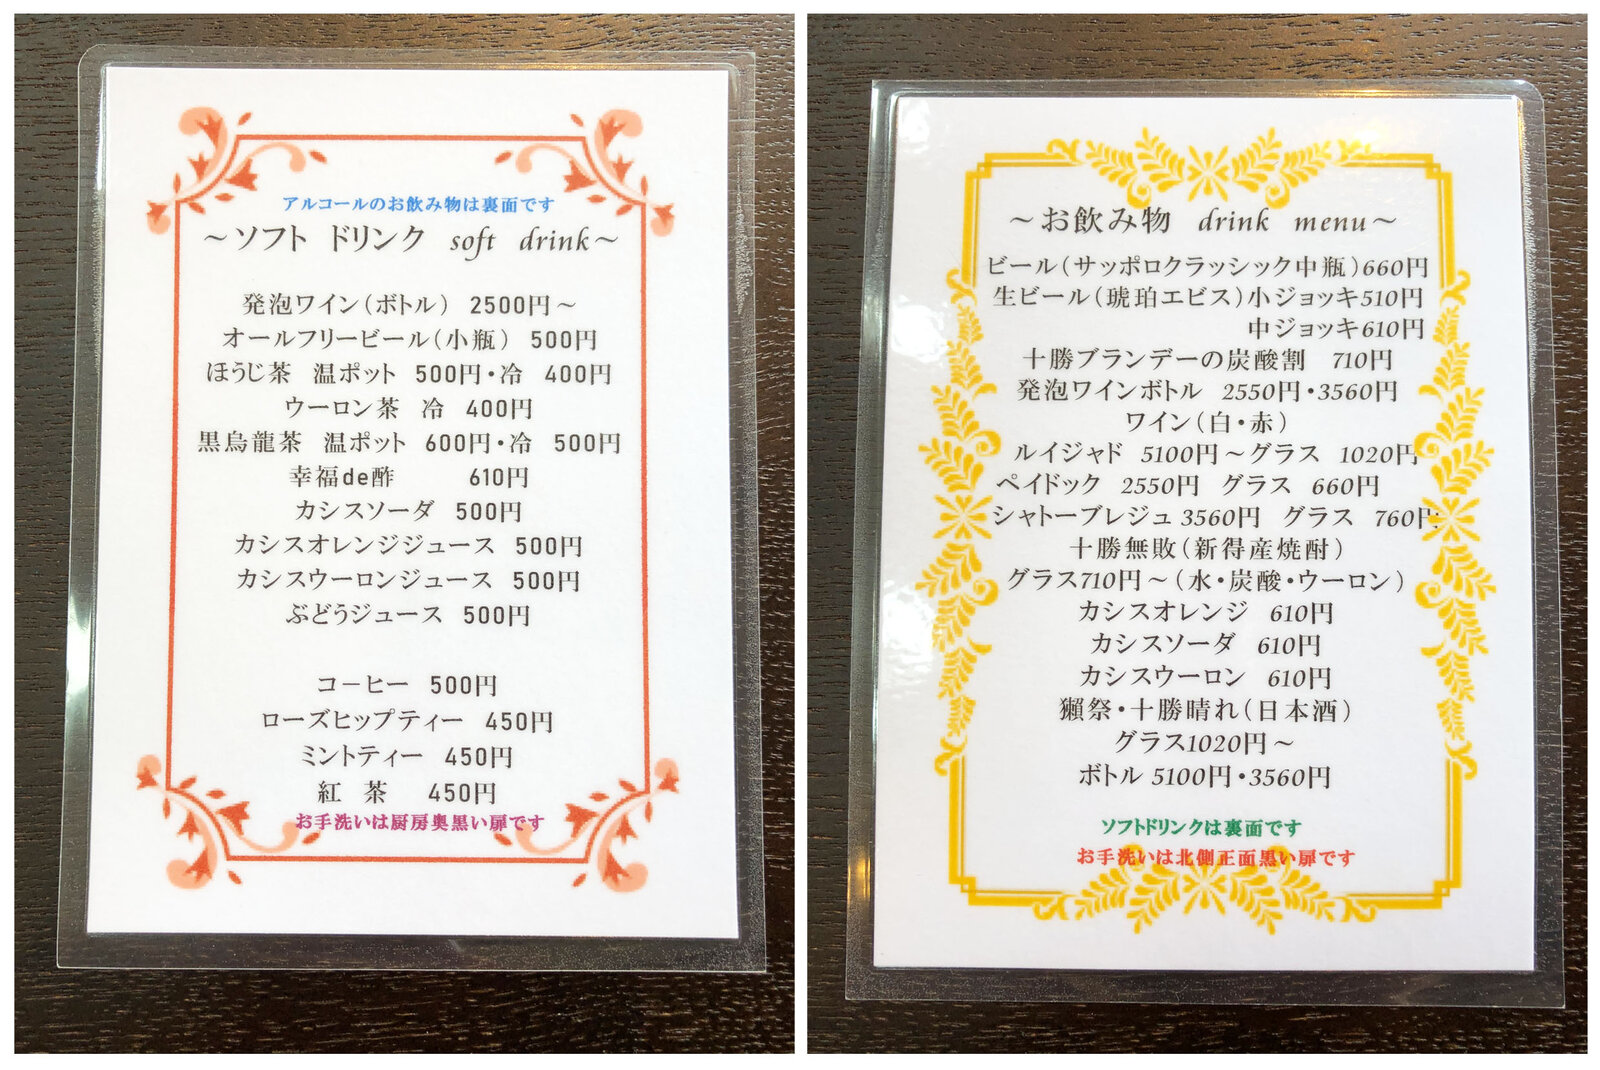 アルコールのお飲み物は裏面です
～ソフト ドリンク soft drink～
発泡ワイン（ボトル） 2500円～
オールフリービール（小瓶） 500円
ほうじ茶 温ポット 500円・冷 400円
ウーロン茶 冷 400円
黒烏龍茶 温ポット 600円・冷 500円
幸福de酢 610円
カシスソーダ 500円
カシスオレンジジュース 500円
カシスウーロンジュース 500円
ぶどうジュース 500円
コーヒー 500円
ローズヒップティー 450円
ミントティー 450円
紅 茶 450円
お手洗いは厨房奥黒い扉です
～お飲み物 drink menu～
ビール（サッポロクラッシック中瓶）660円
生ビール（琥珀エビス）小ジョッキ510円
中ジョッキ610円
十勝ブランデーの炭酸割 710円
発泡ワインボトル 2550円・3560円
ワイン（白・赤）
ルイジャド 5100円～グラス 1020円
ペイドック 2550円 グラス 660円
シャトーブレジュ 3560円 グラス 760円
十勝無敗（新得産焼酎）
グラス710円～（水・炭酸・ウーロン）
カシスオレンジ 610円
カシスソーダ 610円
カシスウーロン 610円
獺祭・十勝晴れ（日本酒）
グラス1020円～
ボトル 5100円・3560円
ソフトドリンクは裏面です
お手洗いは北側正面黒い扉です